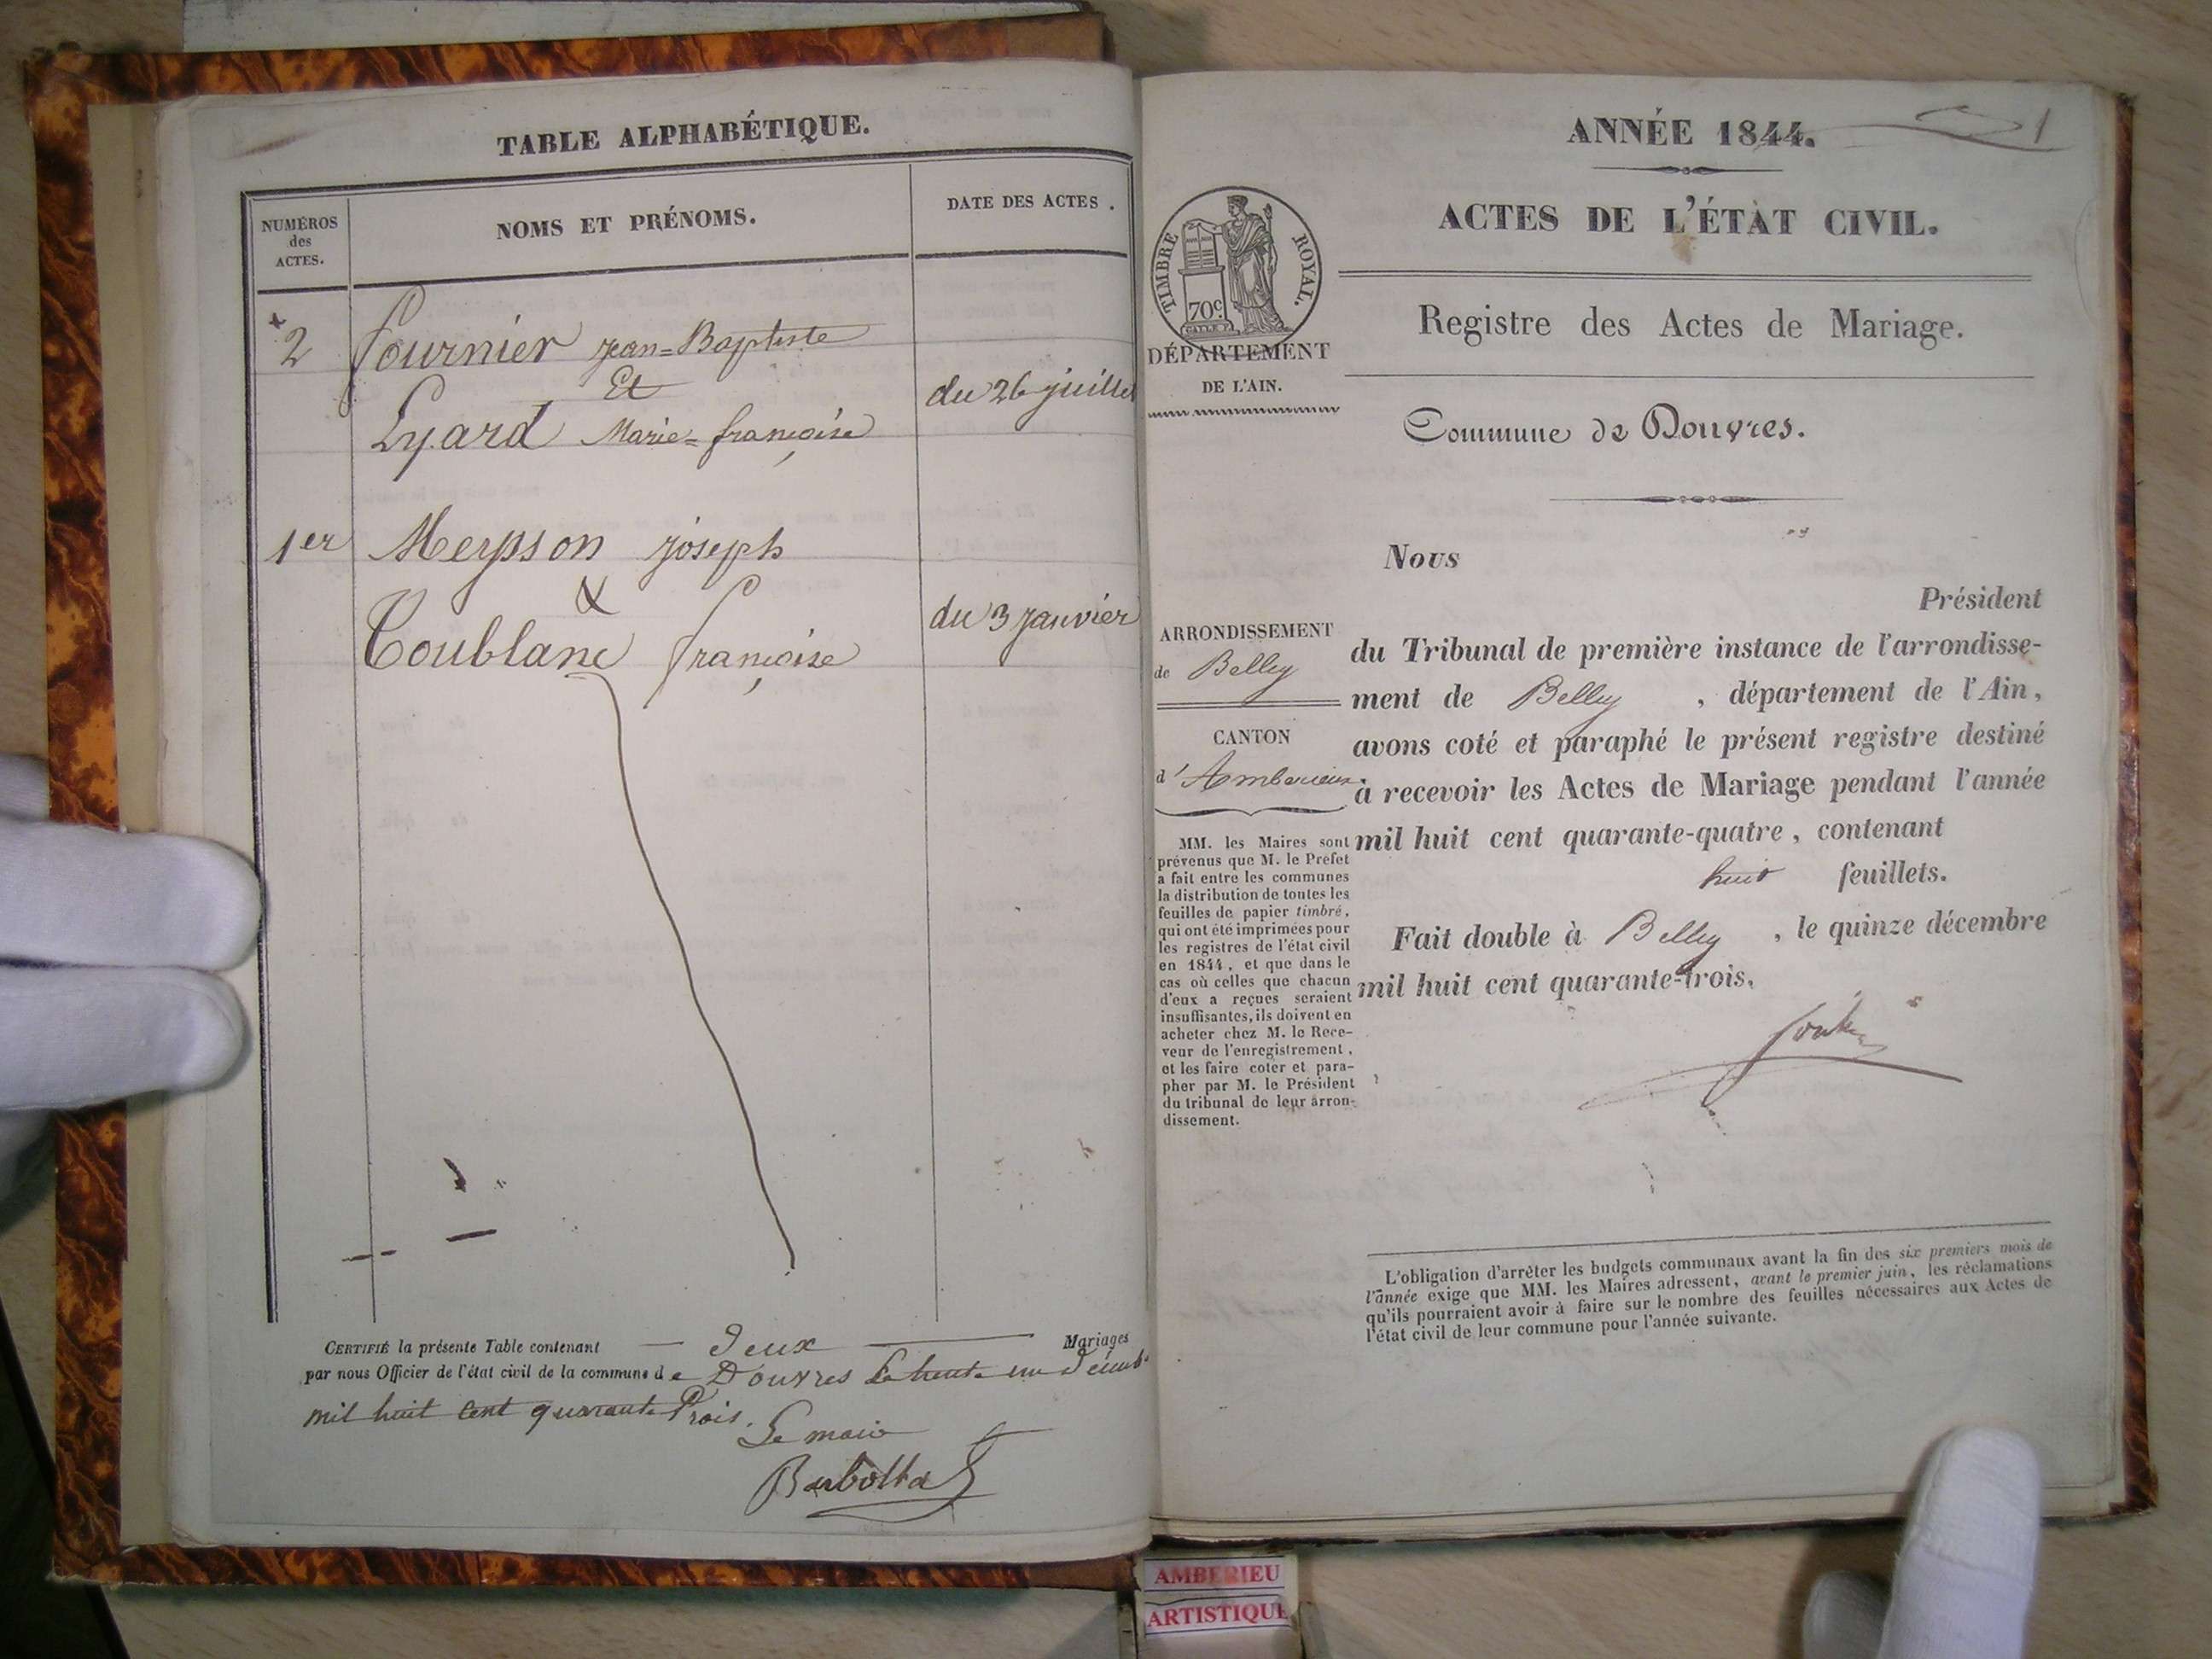 TABLE ALPHABÉTIQUE.
NUMÉROS
des
ACTES.
NOMS ET PRÉNOMS.
DATE DES ACTES.
2 fournier jean=Baptiste
Et
du 26 juillet
Lyard Marie=françoise
1er Meysson joseph
&
Toublanc françoise
du 3 janvier
CERTIFIÉ la présente Table contenant deux Mariages
par nous Officier de l'état civil de la commune de Douvres Le trente un Décemb
mil huit cent quarante Trois.
Le maire
ANNÉE 1844.
1
ACTES DE L'ÉTAT CIVIL.
TIMBRE ROYAL.
70c
DÉPARTEMENT
DE L'AIN.
Registre des Actes de Mariage.
Commune de Douvres.
ARRONDISSEMENT
de Belley
CANTON
d'Amberieux
MM. les Maires sont
prévenus que M. le Préfet
a fait entre les communes
la distribution de toutes les
feuilles de papier timbré,
qui ont été imprimées pour
les registres de l'état civil
en 1844, et que dans le
cas où celles que chacun
d'eux a reçues seraient
insuffisantes, ils doivent en
acheter chez M. le Rece-
veur de l'enregistrement,
et les faire coter et para-
pher par M. le Président
du tribunal de leur arron-
dissement.
Nous
Président
du Tribunal de première instance de l'arrondisse-
ment de Belley, département de l'Ain,
avons coté et paraphé le présent registre destiné
à recevoir les Actes de Mariage pendant l'année
mil huit cent quarante-quatre, contenant
huit feuillets.
Fait double à Belley, le quinze décembre
mil huit cent quarante-trois.
L'obligation d'arrêter les budgets communaux avant la fin des six premiers mois de
l'année exige que MM. les Maires adressent, avant le premier juin, les réclamations
qu'ils pourraient avoir à faire sur le nombre des feuilles nécessaires aux Actes de
l'état civil de leur commune pour l'année suivante.
AMBERIEU
ARTISTIQUE